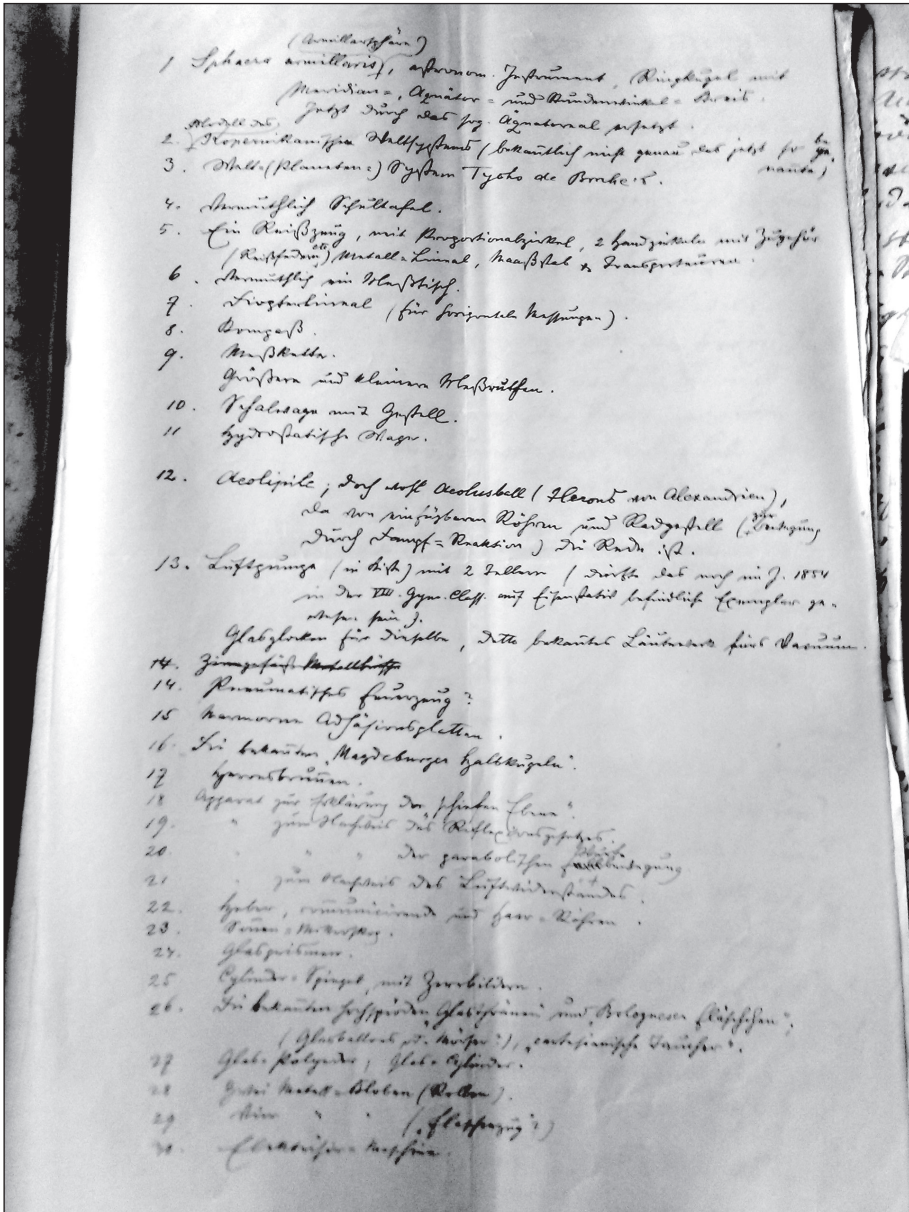 (Armillarsphäre)
1 Sphaera armillaris, astronom. Instrument, Ringkugel mit
Meridian=, Äquator= und Stundenwinkel=Kreis.
Jetzt durch das sog. Äquatoreal ersetzt.
Modell des
2. Kopernikanischen Weltsystems (bekanntlich nicht genau das jetzt so
nannte)
3. Welt=(Planeten=) System Tycho de Brahe's.
4. Vermuthlich Schultafel.
5. Ein Reißzeug, mit Proportionalzirkel, 2 Handzirkeln mit Zugehör
(Reißfedern etc) Metall=Lineal, Maaßstab & Transporteuren.
6. Vermuthlich ein Meßtisch.
7. Diopterlineal (für horizontale Messungen).
8. Kompaß.
9. Meßkette.
Größere und kleinere Meßruthen.
10. Schalwage mit Gestell.
11 Hydrostatische Wage.
12. Aeolipile; doch wohl Aeolusball (Herons von Alexandrien),
da von einfügbaren Röhren und Radgestell (zur Bewegung
durch Dampf=Reaktion) die Rede ist.
13. Luftpumpe (in Kiste) mit 2 Tellern (dürfte das noch im J. 1884
in der VIII. Gym. Class. auf Eisenstativ befindliche Exemplar ge=
wesen sein).
Glasglocken für dieselbe, detto bekanntes Läutewerk fürs Vacuum.
14. Zinngefäß
14. Pneumatisches Feuerzeug?
15 Marmorne Adhäsionsplatten.
16. Die bekannten „Magdeburger Halbkugeln".
17 Heronsbrunnen.
18 Apparat zur Erklärung der „schiefen Ebene".
19. " zum Nachweis des Reflexionsgesetzes.
20. " " " der parabolischen Wurfbewegung
21 " zum Nachweis des Luftwiderstandes.
22. Heber, communicirende und Haar=Röhren.
23. Sonnen=Mikroskop.
24. Glasprismen.
25 Cylinder=Spiegel mit Zerrbildern.
26. Die bekannten Glasthränen und „Bologneser Fläschchen",
„cartesianische Taucher".
27 Glas=Polyeder, Glas=Cylinder.
28 Zwei Metall=Kloben (Rollen).
29 Vier " " („Flaschenzug"?)
30. Elektrisir=Maschine.